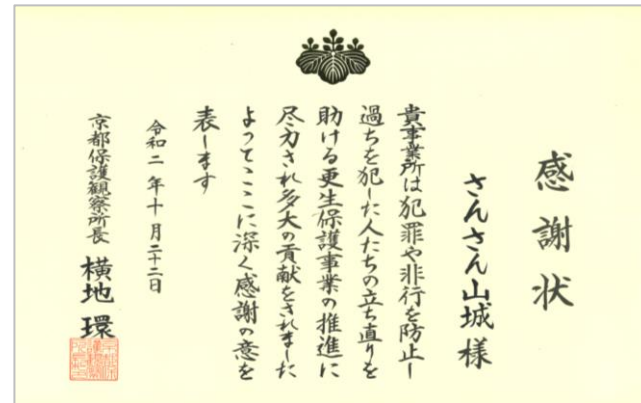 感謝状
さんさん山城様
貴事業所は犯罪や非行を防止し
過ちを犯した人たちの立ち直りを
助ける更生保護事業の推進に
尽力され多大の貢献をされました
よってここに深く感謝の意を
表します
令和二年十月二十二日
京都保護観察所長 横地環